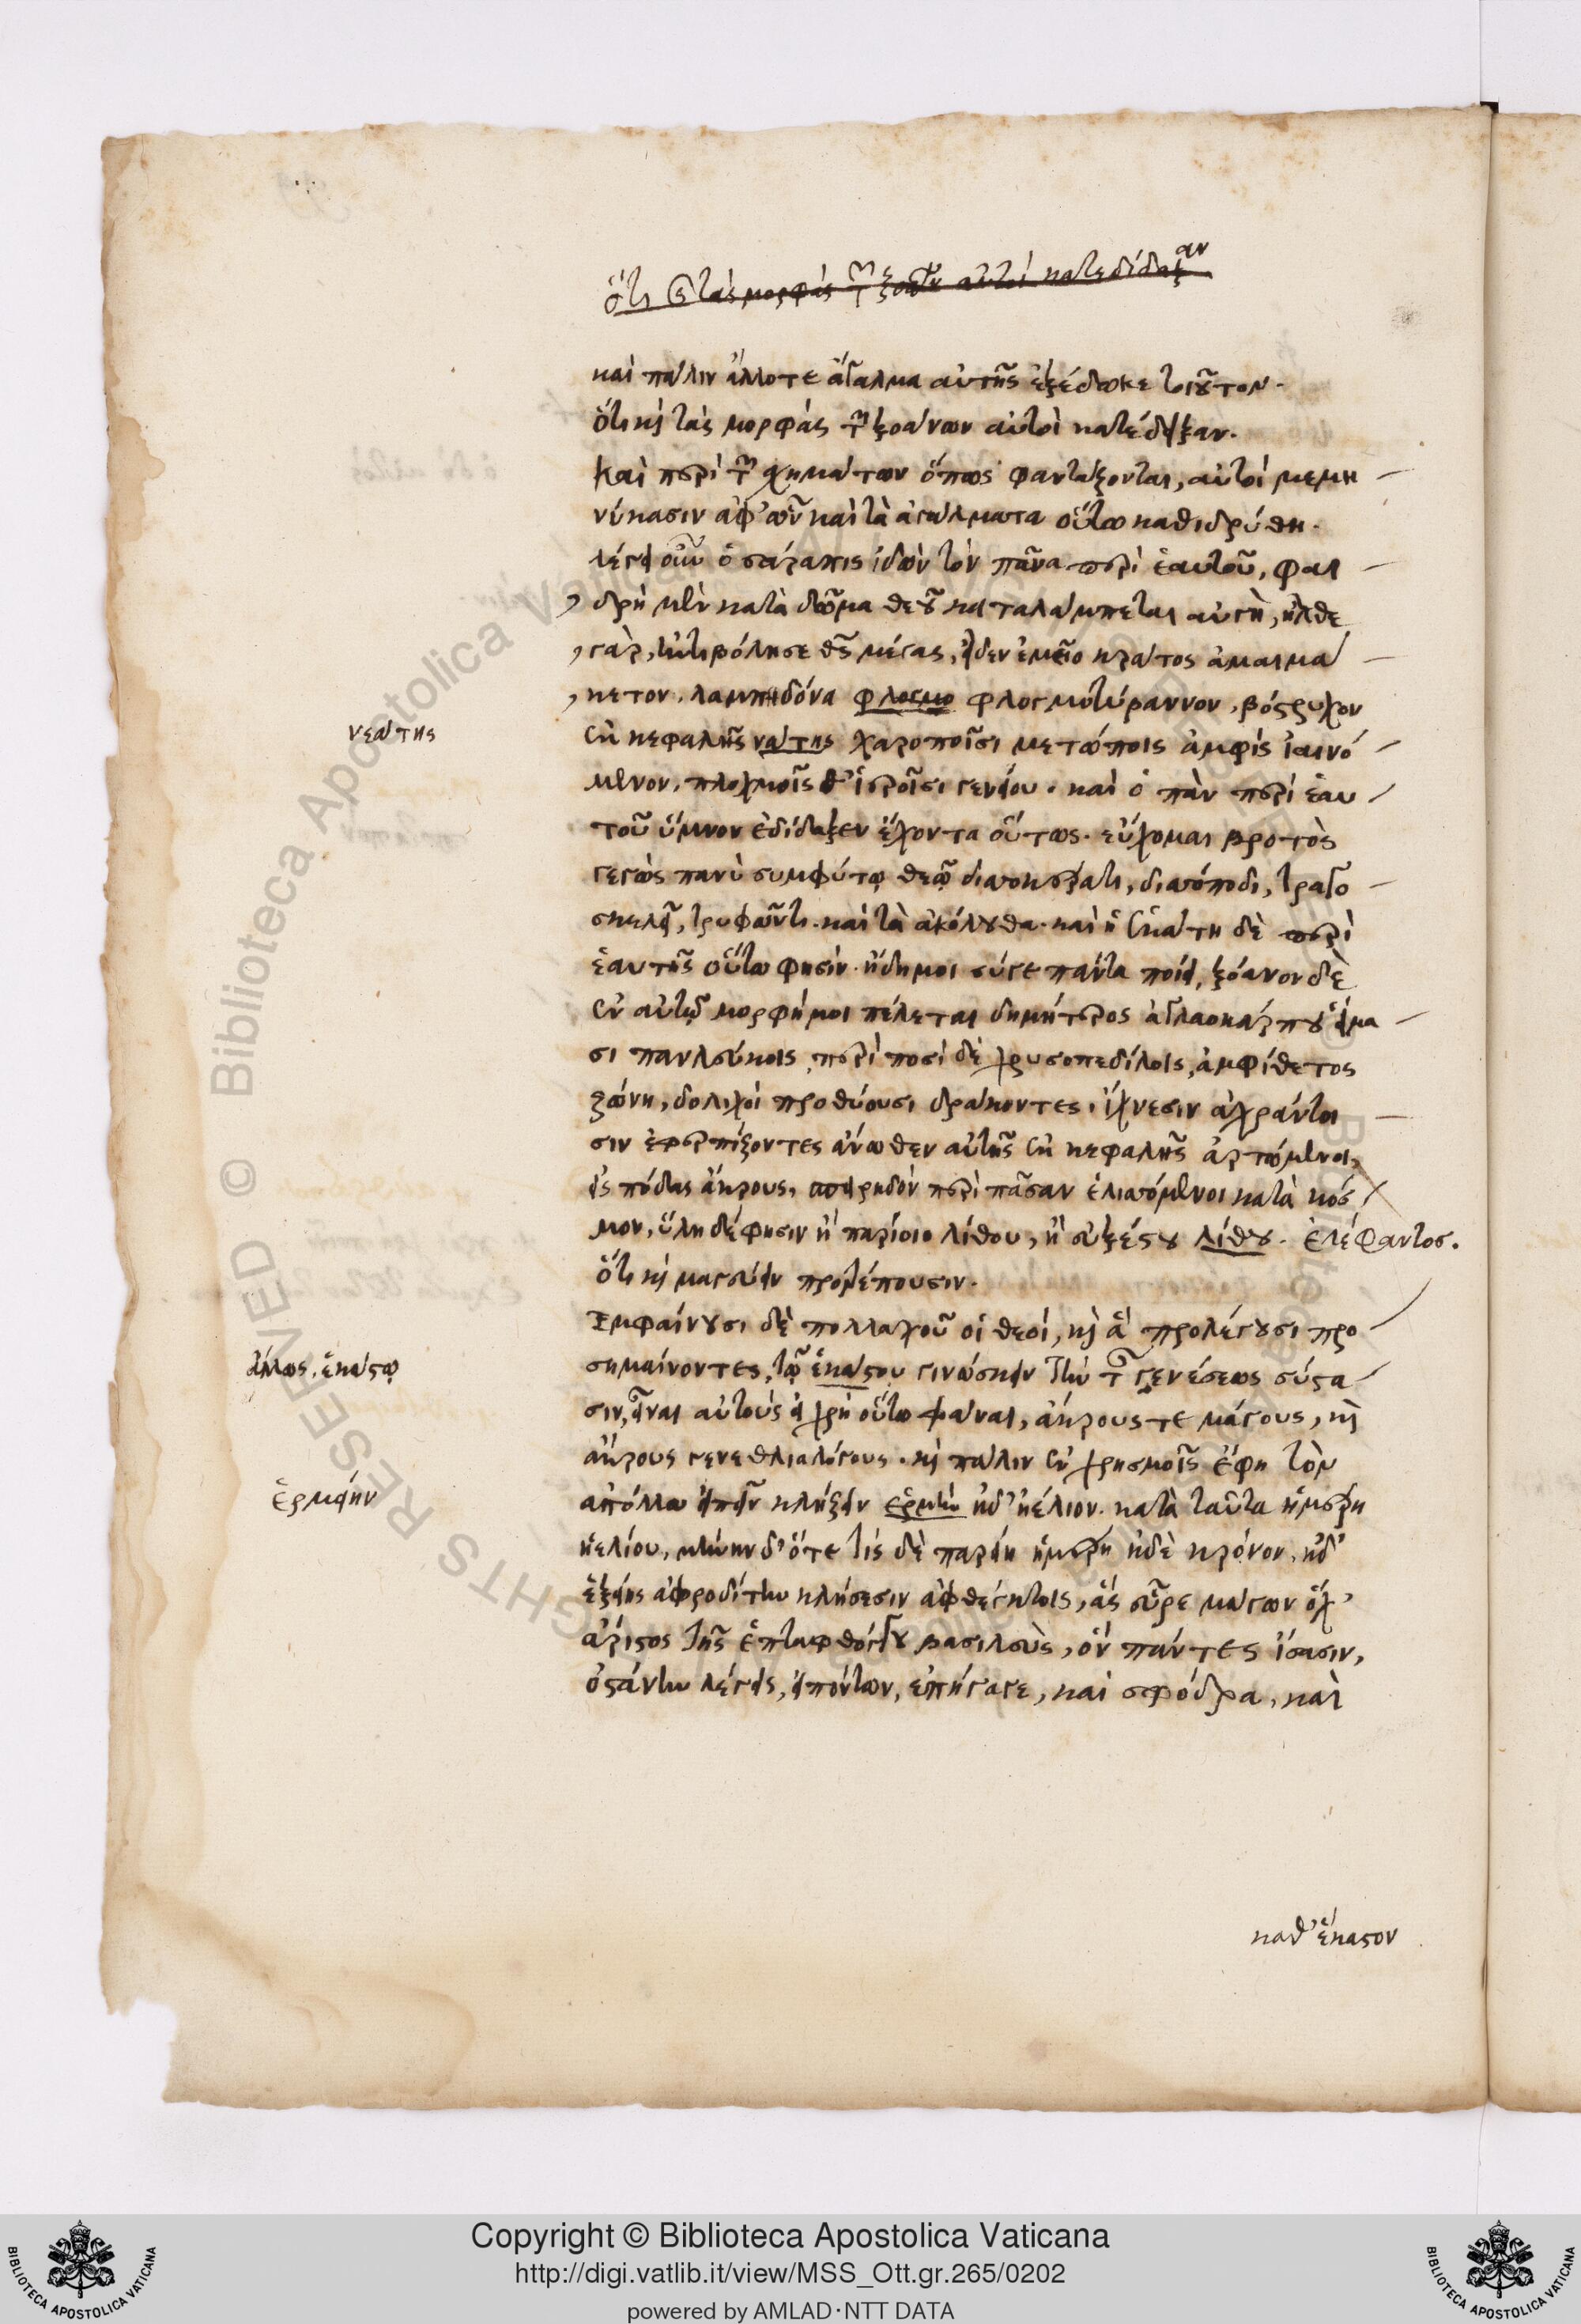 ὅτι καὶ τὰς μορφὰς τῶν ξοάνων αὐτοὶ κατεδίδαξαν
καὶ πάλιν ἄλλοτε ἄγαλμα αὐτῆς ἐξέδωκε τοιοῦτον.
ὅτι καὶ τὰς μορφὰς τῶν ξοάνων αὐτοὶ κατέδειξαν.
Καὶ περὶ τῶν σχημάτων ὅπως φαντάζονται, αὐτοὶ μεμη
νύκασιν ἀφ' ὧν καὶ τὰ ἀγάλματα οὕτω καθιδρύθη.
λέγει οὖν ὁ σάραπις ἰδὼν τὸν πᾶνα περὶ ἑαυτοῦ, φαι
δρὴ μὲν κατὰ δῶμα θεοῦ καταλάμπεται αὐγὴ, ἦλθε
γὰρ, ἠντιβόλησε θεὸς μέγας, εἶδεν ἐμεῖο κράτος ἀμαιμά
κετον. λαμπηδόνα φλογμο φλογμοτύραννον, βόστρυχον
νεάτης
ἐκ κεφαλῆς νάτης χαροποῖσι μετώποις ἀμφὶς ἰαινό
μενον. πλοχμοῖς θ' ἱεροῖσι γενείου. καὶ ὁ πὰν περὶ ἑαυ
τοῦ ὕμνον ἐδίδαξεν ἔχοντα οὕτως. εὔχομαι βροτὸς
γεγὼς πανὶ συμφύτῳ θεῷ δισσοκέρατι, δισσόποδι, τραγο
σκελεῖ, τρυφῶντι. καὶ τὰ ἀκόλουθα. καὶ ἡ ἑκάτη δὲ περὶ
ἑαυτῆς οὕτω φησίν. ἤδη μοι σύγε πάντα ποίει, ξόανον δὲ
ἐν αὐτῷ μορφή μοι πέλεται δημήτερος ἀγλαοκάρπου εἵμα
σι πανλεύκοις, περὶ ποσὶ δὲ χρυσοπεδίλοις, ἀμφίθετος
ζώνη, δολιχοὶ προθύουσι δράκοντες, ἴχνεσιν ἀχράντοι
σιν ἐφερπίζοντες ἄνωθεν αὐτῆς ἐκ κεφαλῆς ἀρτώμενοι,
εἰς πόδας ἄκρους, σπειρηδὸν περὶ πᾶσαν ἑλισσόμενοι κατὰ κόσ
μον. ὕλη δέ φησιν ἢ παρίοιο λίθου, ἢ εὐξέστου λίθου. ἐλέφαντος.
ὅτι καὶ μαγεύειν προτρέπουσιν.
Ἐμφαίνουσι δὲ πολλαχοῦ οἱ θεοί, καὶ ἃ προλέγουσι προ
ἄλλως. ἑκάστῳ
σημαίνοντες, τῷ ἑκάστου γινώσκειν τὴν τῆς γενέσεως σύστα
σιν, εἶναι αὐτοὺς εἰ χρὴ οὕτω φάναι, ἄκρους τε μάγους, καὶ
ἄκρους γενεθλιαλόγους. καὶ πάλιν ἐν χρησμοῖς ἔφη τὸν
ἑρμείην
ἀπόλλω εἰπεῖν κλήζειν ἑρμῆν ἠδ' ἠέλιον. κατὰ ταῦτα ἡμέρη
ἠελίου, μήνην δ' ὅτε τῆς δὲ παρείη ἡμέρη ἠδὲ κρόνον, ἠδ'
ἑξείης ἀφροδίτην κλήσεσιν ἀφθέγκτοις, ἃς εὗρε μάγων ὄχ'
ἄριστος τῆς ἑπταφθόγγου βασιλεὺς, ὃν πάντες ἴσασιν,
ὀστάνην λέγεις, εἰπόντων, ἐπήγαγε, καὶ σφόδρα, καὶ
καθ' ἕκαστον
Copyright © Biblioteca Apostolica Vaticana
http://digi.vatlib.it/view/MSS_Ott.gr.265/0202
powered by AMLAD·NTT DATA